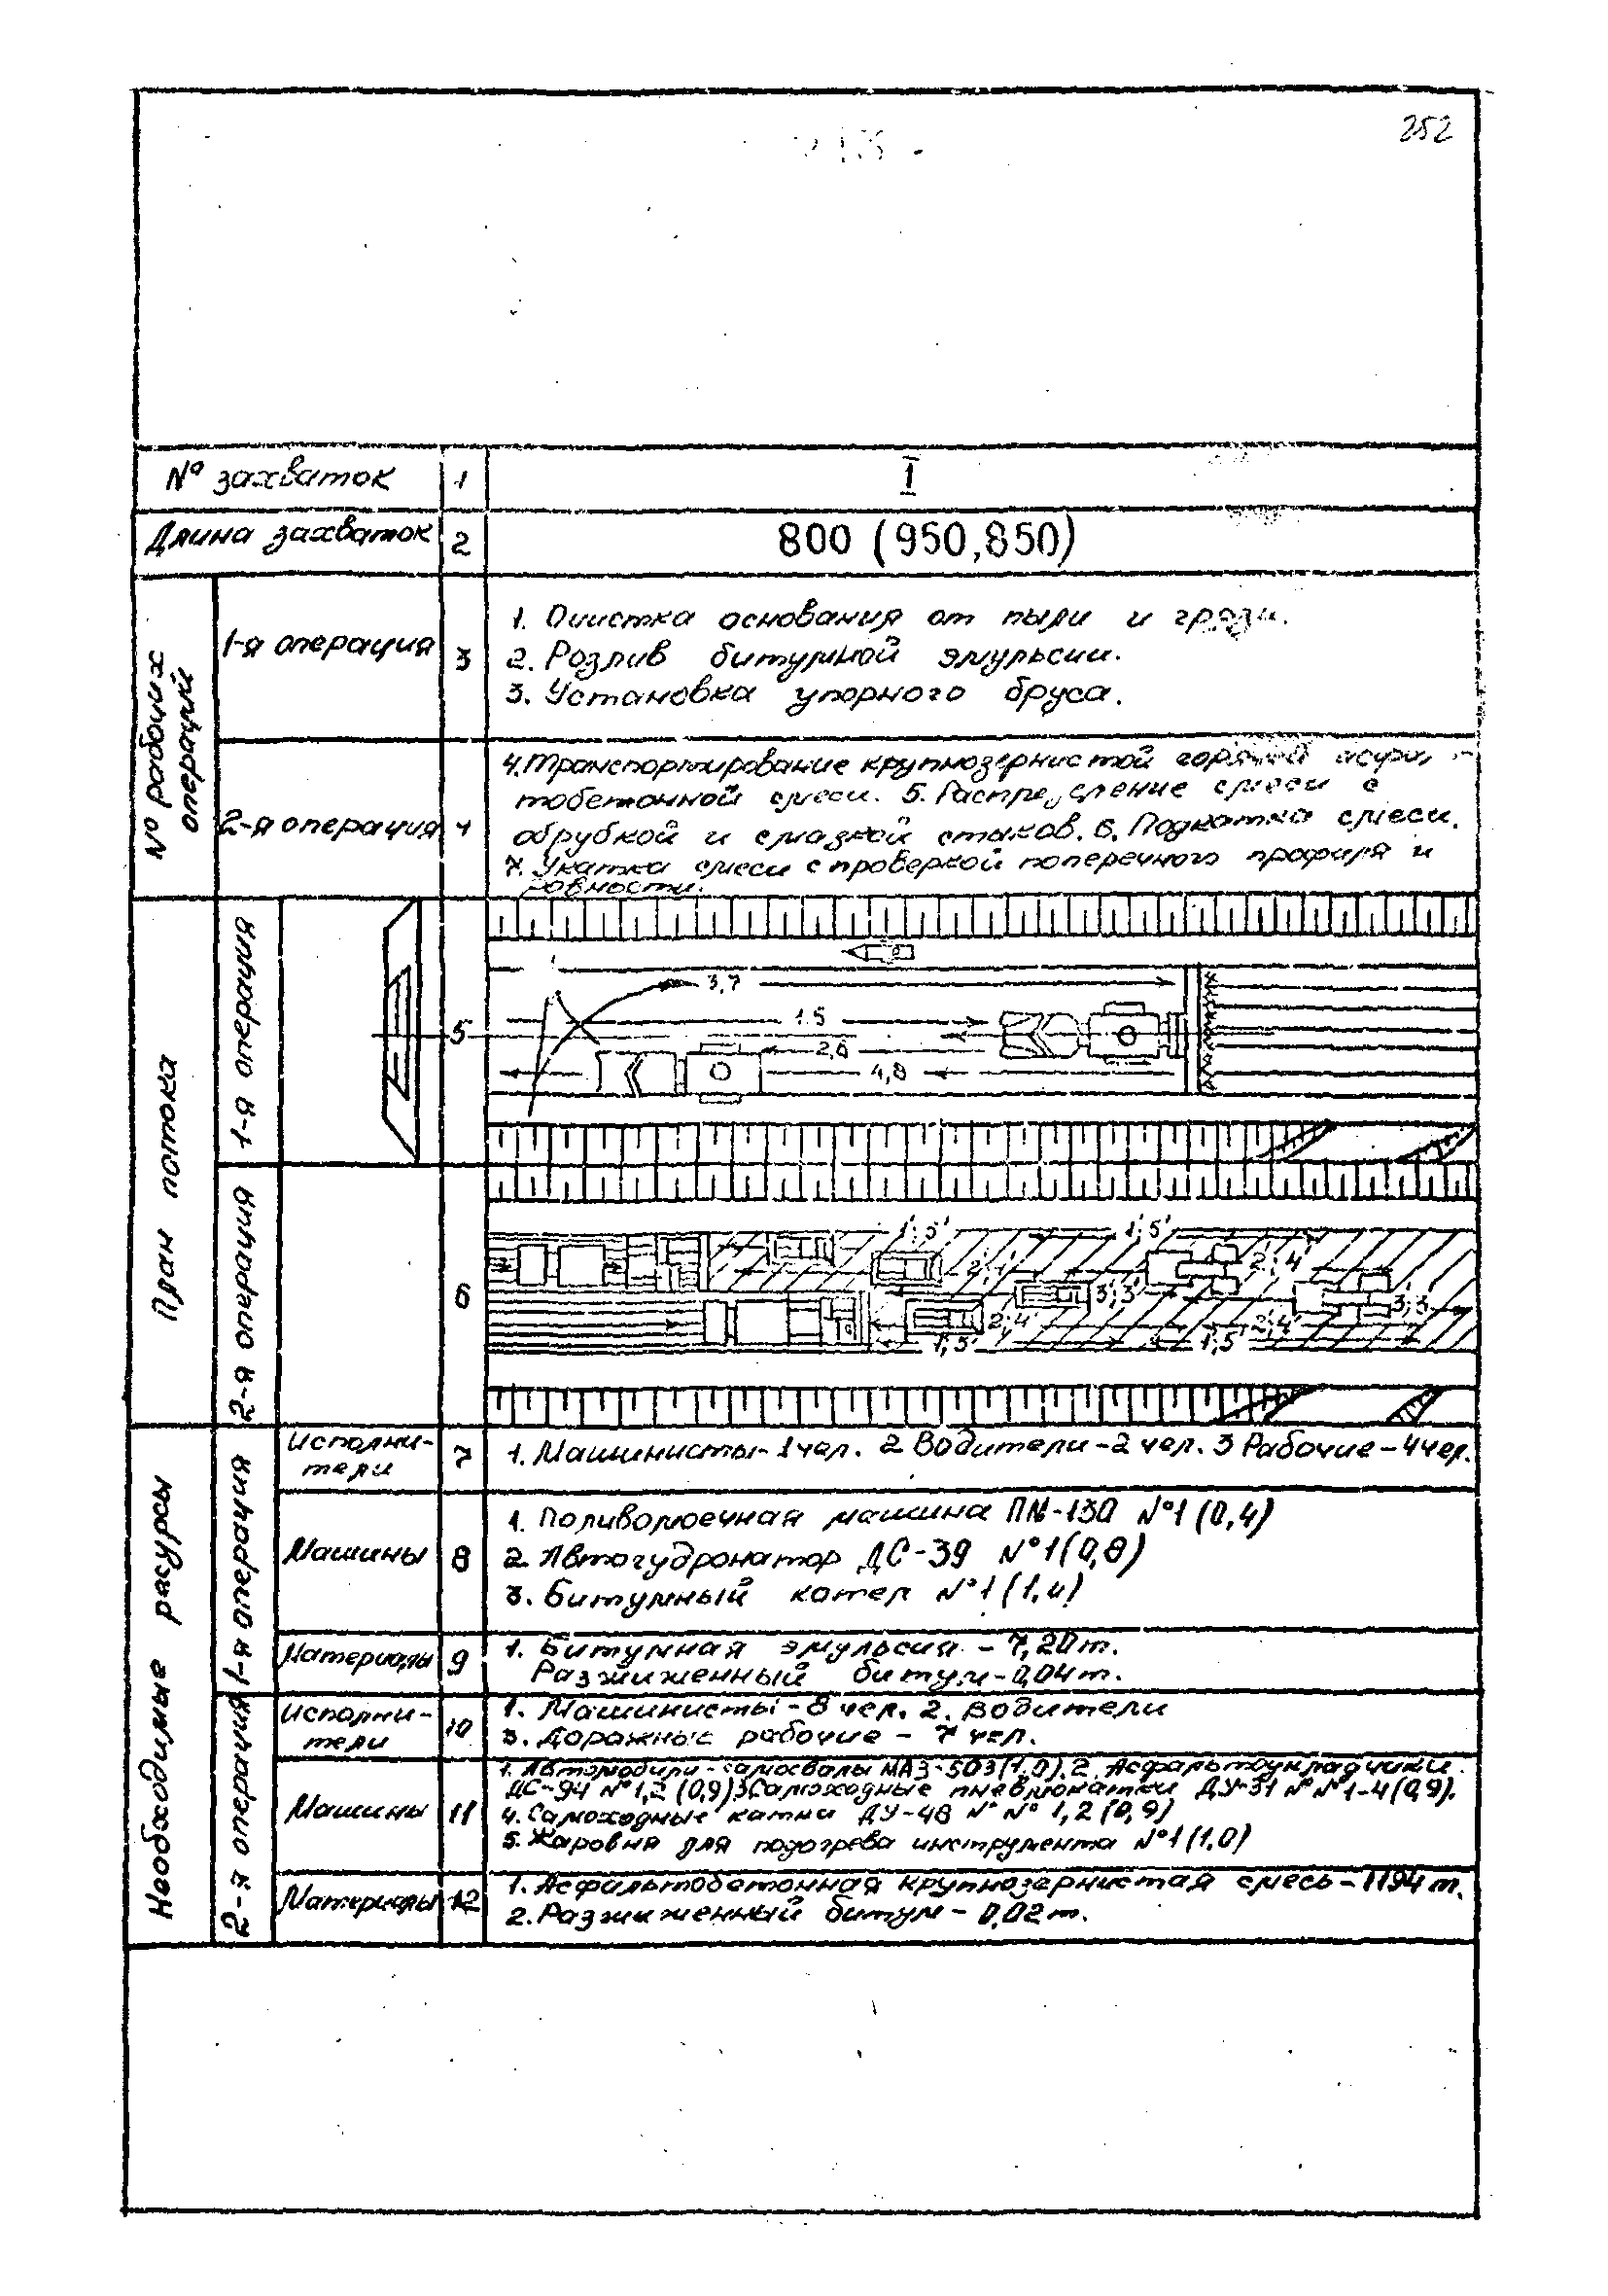 252
№ захваток 1 I
Длина захваток 2 800 (950,850)
№ рабочих операций
1-я операция 3
1. Очистка основания от пыли и грязи.
2. Розлив битумной эмульсии.
3. Установка упорного бруса.
2-я операция 4
4. Транспортирование крупнозернистой горячей асфаль-
тобетонной смеси. 5. Распределение смеси с
обрубкой и смазкой стыков. 6. Подкатка смеси.
7. Укатка смеси с проверкой поперечного профиля и
ровности.
План потока
1-я операция 5
3,7
1.5
2,6
4,8
2-я операция 6
1;5' 1;5'
2;4'
3;3' 3;3
2;4' 2;4'
1;5' 1;5'
Необходимые расурсы
1-я операция
Исполни-
тели 7 1. Машинисты- 1 чел. 2 Водители-2 чел. 3 Рабочие-4чел.
Машины 8
1. Поливомоечная машина ПМ-130 №1 (0,4)
2. Автогудронатор ДС-39 №1(0,8)
3. Битумный котел №1 (1,4)
Материалы 9 1. Битумная эмульсия - 7,20т.
Разжиженный битум-0,04т.
2-я операция
Исполни-
тели 10 1. Машинисты-8 чел. 2. Водители
3. Дорожные рабочие - 7 чел.
Машины 11
1. Автомобили-самосвалы МАЗ-503(1,0). 2. Асфальтоукладчики
ДС-94 №1,2 (0,9) 3. Самоходные пневмокатки ДУ-31 №№1-4(0,9).
4. Самоходные катки ДУ-48 №№ 1,2 (0,9)
5. Жаровня для подогрева инструмента №1 (1,0)
Материалы 12 1. Асфальтобетонная крупнозернистая смесь-1194т.
2. Разжиженный битум- 0,02т.